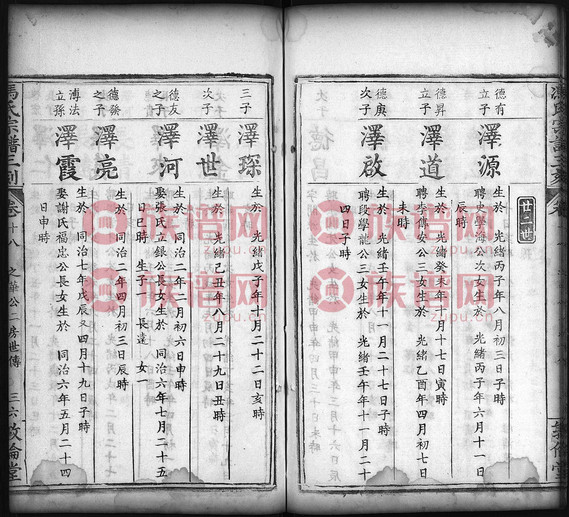 廿二世
德有立子
澤源
生於 光緒丙子年八月初三日子時
聘史學海公次女生於 光緒丙子年六月十一日
辰時
德昇立子
澤道
生於 光緒癸未年十月十七日寅時
聘李傳安公三女生於 光緒乙酉年四月初七日
未時
德庚次子
澤啟
生於 光緒壬午年十一月二十七日子時
聘段學龍公三女生於 光緒壬午年十一月二十
四日子時
三子
澤琛
生於 光緒戊子年十月二十二日亥時
次子
澤世
生於 光緒己丑年八月二十九日丑時
德友之子
澤河
生於 同治二年八月初六日申時
娶張氏立銀公長女生於 同治六年七月二十五
日巳時 生子一 長達 女一
德癸之子
澤亮
生於 同治二年四月初三日辰時
溥法立孫
澤霞
生於 同治七年戊辰又四月十九日子時
娶謝氏福忠公長女生於 同治六年五月二十四
日申時
馮氏宗譜三刻
卷十八
之 公二房世傳
三六
敦倫堂
族谱网
zupu.cn